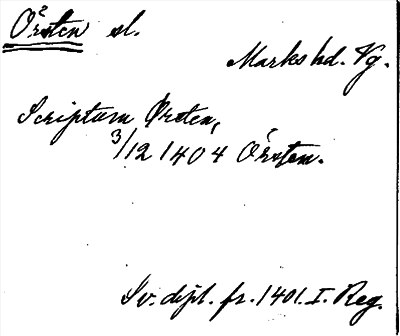 Örsten sl.
Marks hd. Vg.
Scriptum Ørsten,
3/12 1404 Örsten.
Sv. dipl. fr. 1401. I. Reg.